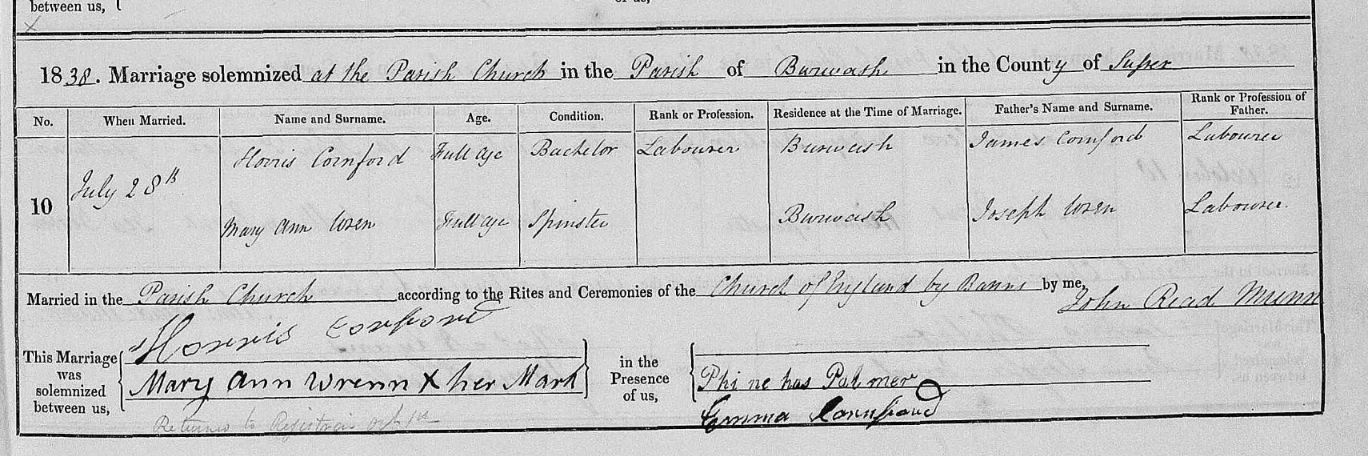 between us,
of us,
X
1838. Marriage solemnized at the Parish Church in the Parish of Burwash in the County of Sussex
No. When Married. Name and Surname. Age. Condition. Rank or Profession. Residence at the Time of Marriage. Father's Name and Surname. Rank or Profession of Father.
10 July 28th
Horris Cornford Full age Bachelor Labourer Burwash James Cornford Labourer
Mary Ann Wren Full age Spinster Burwash Joseph Wren Labourer
Married in the Parish Church according to the Rites and Ceremonies of the Church of England by Banns by me, John Read Munn
This Marriage was solemnized between us,
Horris
Mary Ann Wrenn X her Mark
in the Presence of us,
Phinehas Palmer
Emma
Returned to Registrar